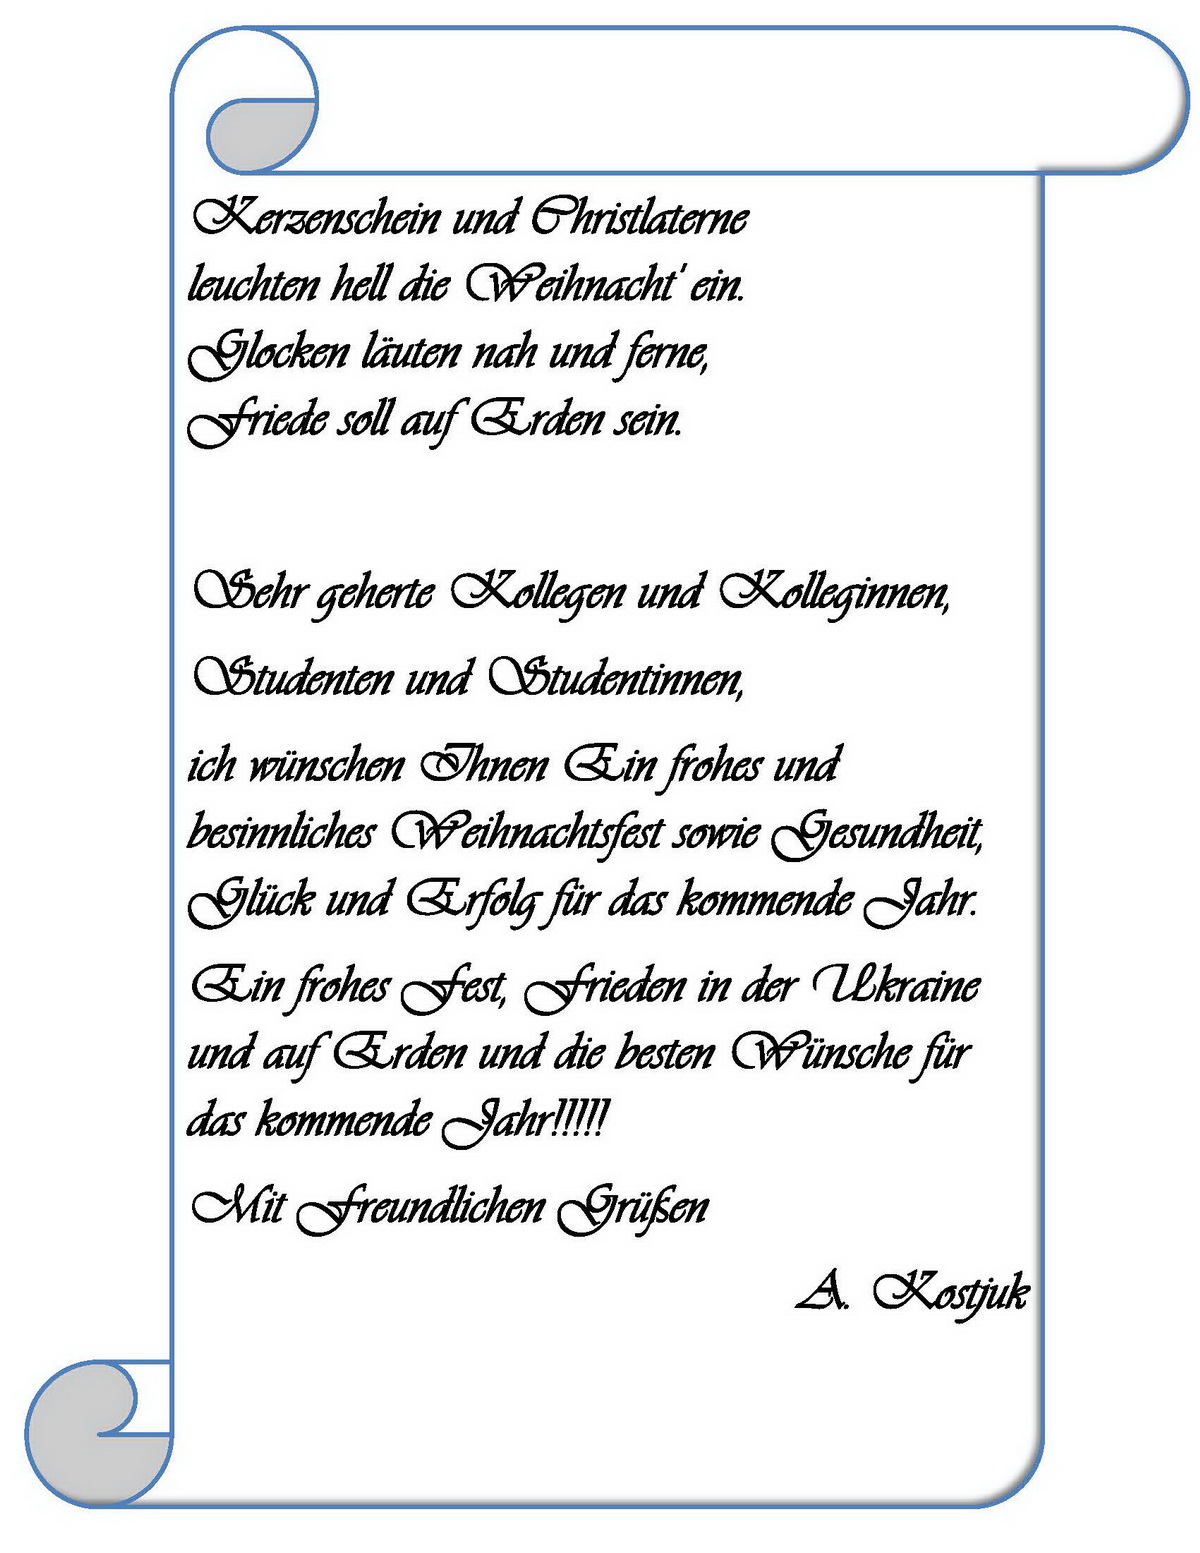 Kerzenschein und Christlaterne
leuchten hell die Weihnacht' ein.
Glocken läuten nah und ferne,
Friede soll auf Erden sein.
Sehr geherte Kollegen und Kolleginnen,
Studenten und Studentinnen,
ich wünschen Ihnen Ein frohes und
besinnliches Weihnachtsfest sowie Gesundheit,
Glück und Erfolg für das kommende Jahr.
Ein frohes Fest, Frieden in der Ukraine
und auf Erden und die besten Wünsche für
das kommende Jahr!!!!!
Mit Freundlichen Grüßen
A. Kostjuk